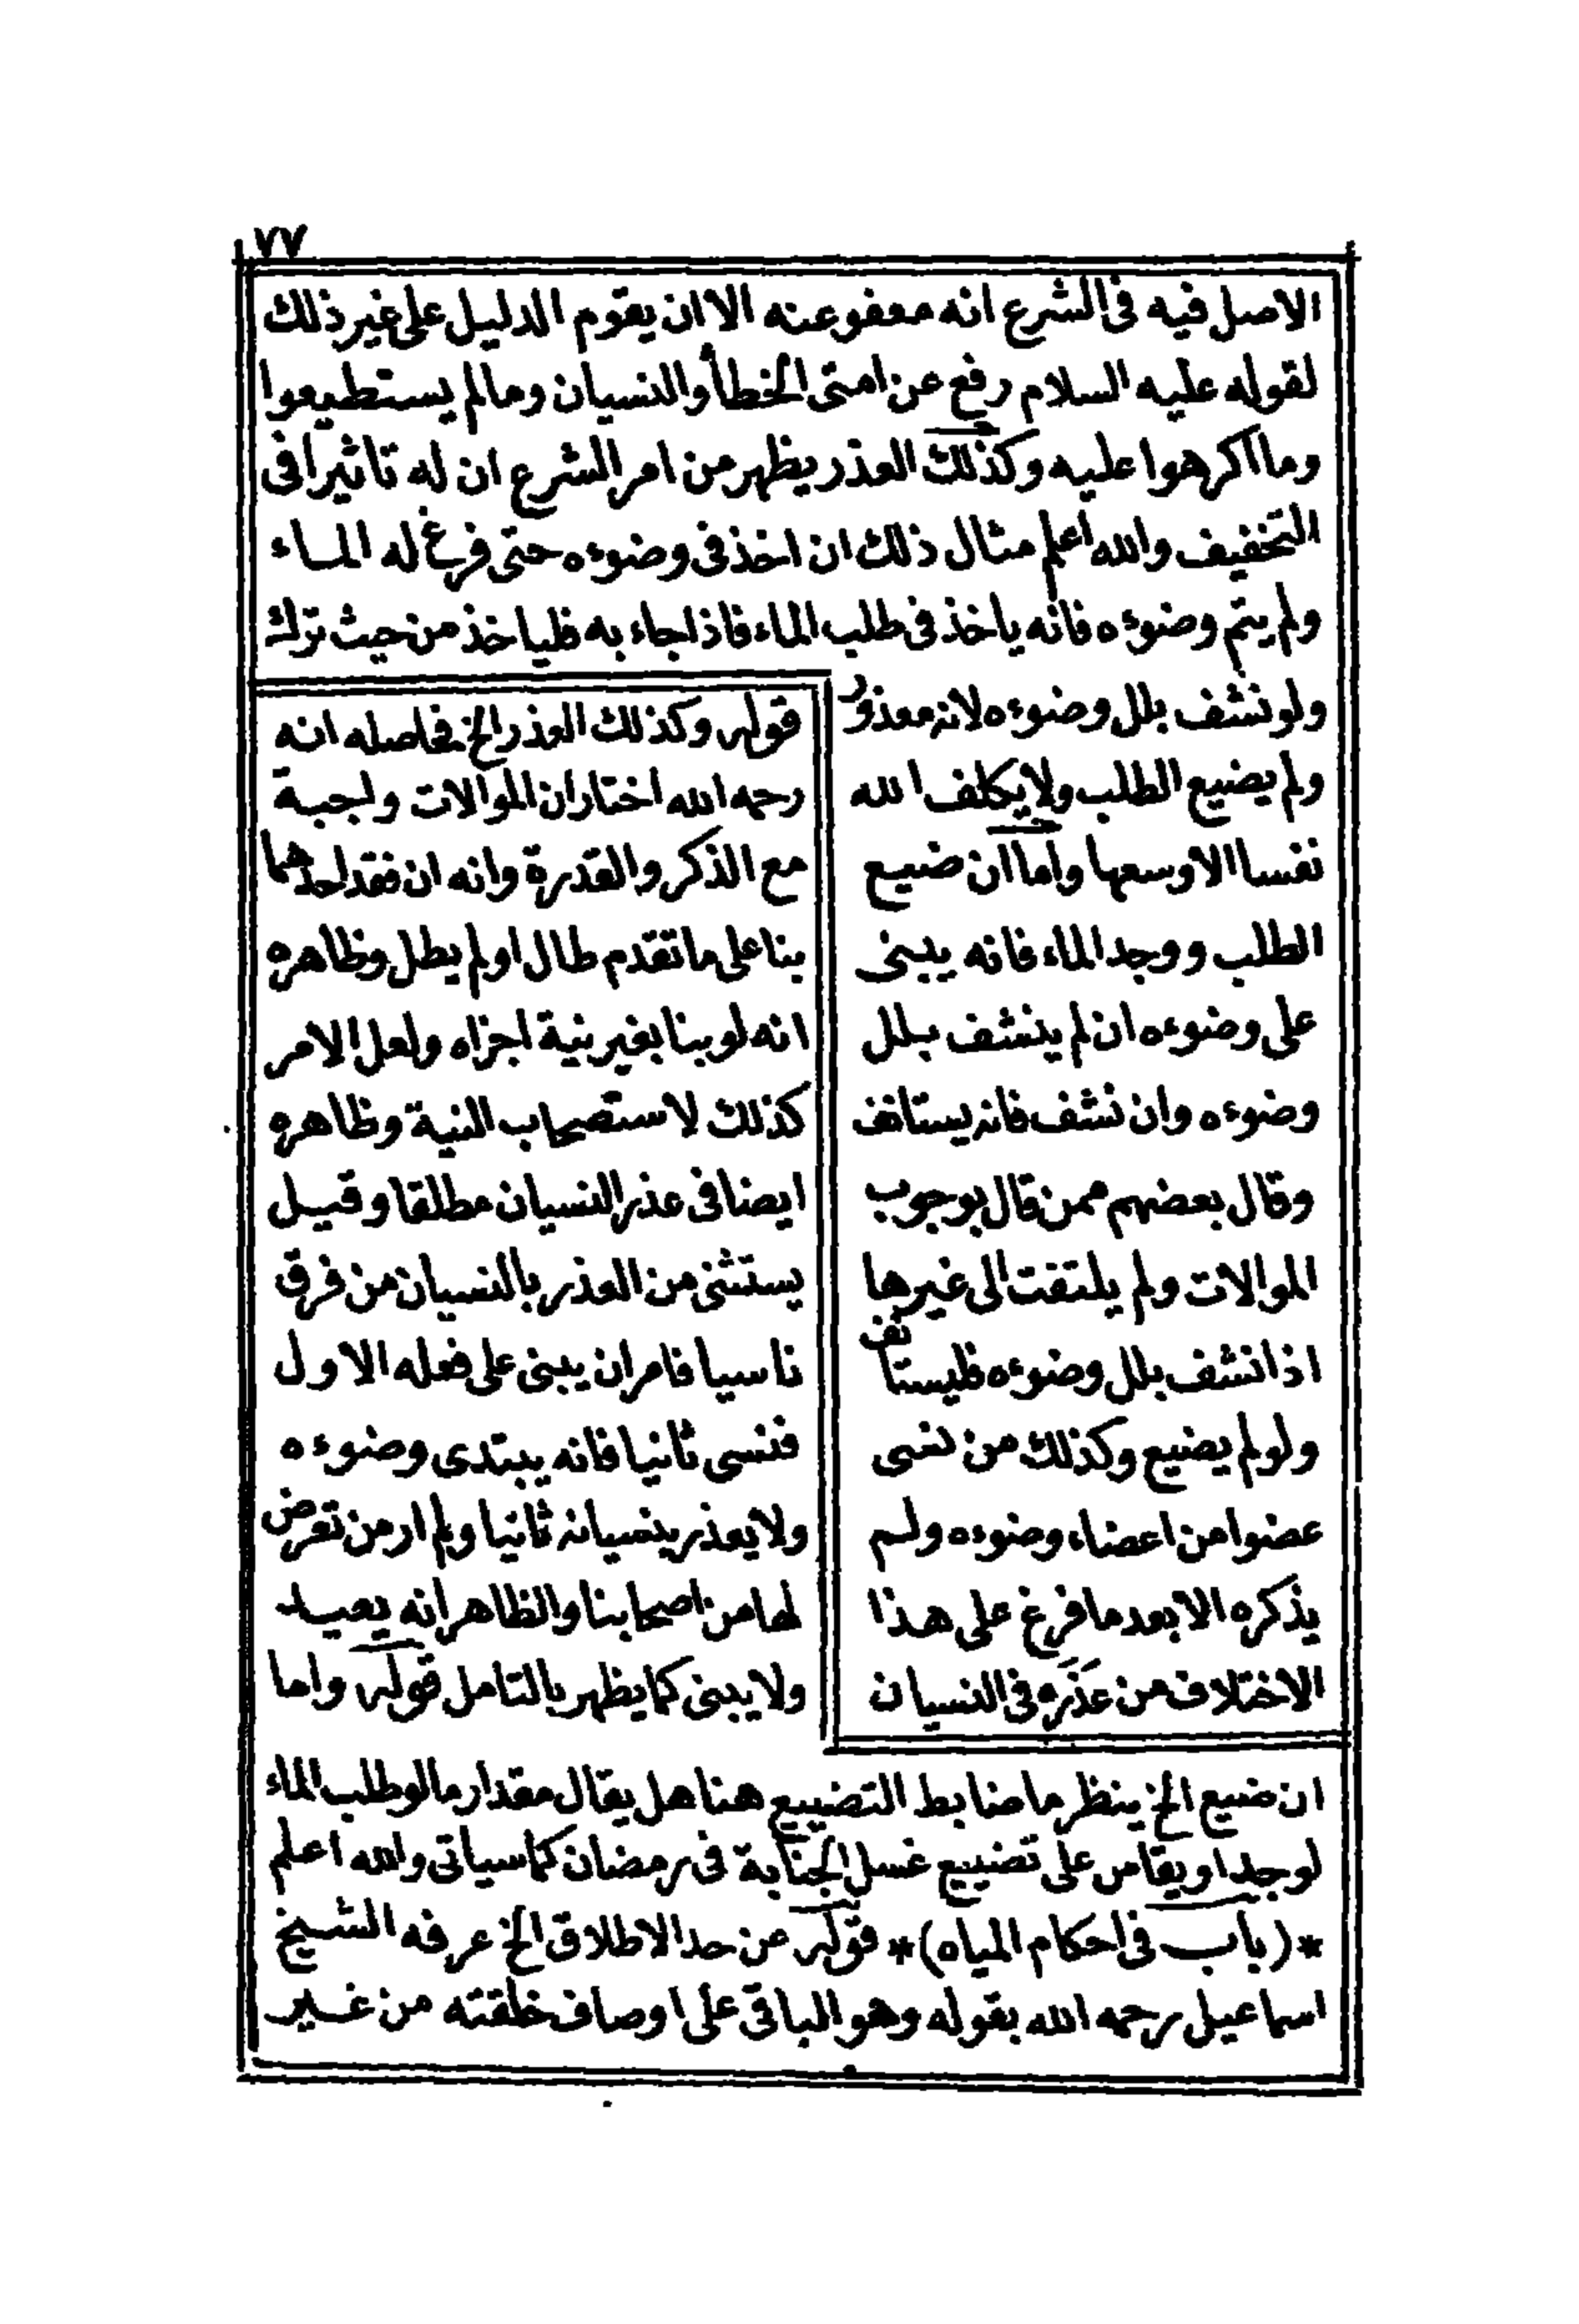 ٧٧
الاصل فيه فى الشرع انه معفو عنه الا ان يقوم الدليل على غير ذلك
لقوله عليه السلام رفع عن امتى الخطأ والنسيان وما لم يستطيعوا
وما اكرهوا عليه وكذلك العذر يظهر من امر الشرع ان له تاثيرا فى
التخفيف والله اعلم مثال ذلك ان اخذ فى وضوءه حتى فرغ له الماء
ولم يتم وضوءه فانه ياخذ فى طلب الماء فاذا جاء به فلياخذ من حيث ترك
ولو نشف بلل وضوءه لانه معذور
ولم يضيع الطلب ولا يكلف الله
نفسا الا وسعها واما ان ضيع
الطلب ووجد الماء فانه يبنى
على وضوءه ان لم ينشف بلل
وضوءه وان نشف فانه يستانف
وقال بعضهم ممن قال بوجوب
الموالات ولم يلتفت الى غيرها
اذا نشف بلل وضوءه فليستانف
ولو لم يضيع وكذلك من نسى
عضوا من اعضاء وضوءه ولم
يذكره الا بعد ما فرغ على هذا
الاختلاف من عَذَره فى النسيان
قوله وكذلك العذر الخ فحاصله انه
رحمه الله اختار ان الموالات واجبة
مع الذكر والقدرة وانه ان فقد احدهما
بنا على ما تقدم طال او لم يطل وظاهره
انه لو بنا بغير نية اجزاه ولعل الامر
كذلك لاستصحاب النية وظاهره
ايضا فى عذر النسيان مطلقا وقيل
يستثنى من العذر بالنسيان من فرق
ناسيا فامر ان يبنى على فعله الاول
فنسى ثانيا فانه يبتدى وضوءه
ولا يعذر بنسيانه ثانيا ولم ار من تعرض
لها من اصحابنا والظاهر انه يعيد
ولا يبنى كما يظهر بالتامل قوله واما
ان ضيع الخ ينظر ما ضابط التضييع هنا هل يقال مقدار ما لو طلب الماء
لوجد او يقاس على تضييع غسل الجنابة فى رمضان كما سياتى والله اعلم
* (باب فى احكام المياه) * قوله عن حد الاطلاق الخ عرفه الشيخ
اسماعيل رحمه الله بقوله وهو الباقى على اوصاف خلقته من غير